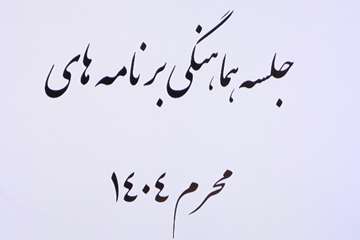 جلسه هماهنگی برنامه های
محرم ۱۴۰۴